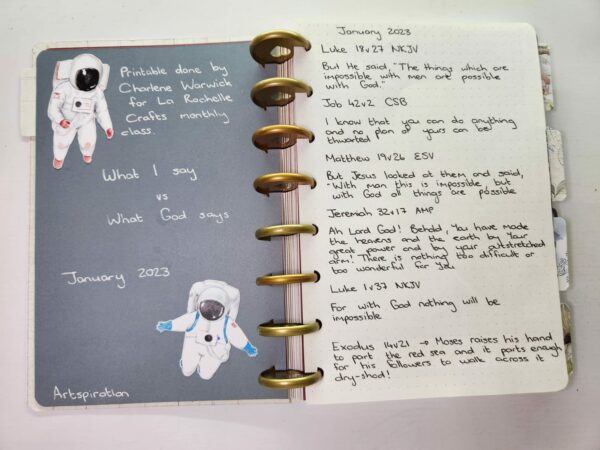 Printable done by
Charlene Warwick
for La Rochelle
Crafts monthly
class.
What I say
vs
What God says
January 2023
Artspiration
January 2023
Luke 18v27 NKJV
But He said, "The things which are
impossible with men are possible
with God."
Job 42v2 CSB
I know that you can do anything
and no plan of yours can be
thwarted
Matthew 19v26 ESV
But Jesus looked at them and said,
"With man this is impossible, but
with God all things are possible
Jeremiah 32v17 AMP
Ah Lord God! Behold, You have made
the heavens and the earth by Your
great power and by your outstretched
arm! There is nothing too difficult or
too wonderful for you
Luke 1v37 NKJV
For with God nothing will be
impossible
Exodus 14v21 → Moses raises his hand
to part the red sea and it parts enough
for his followers to walk across it
dry-shod!